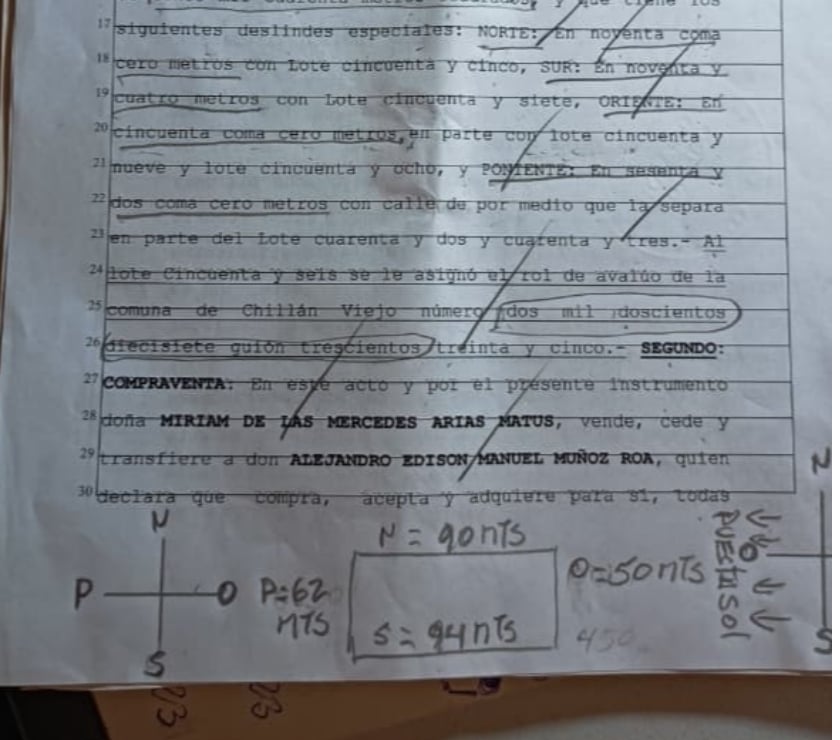 cuarenta metros cuadrados, y que tiene los
17 siguientes deslindes especiales: NORTE: En noventa coma
18 cero metros con Lote cincuenta y cinco, SUR: En noventa y
19 cuatro metros con Lote cincuenta y siete, ORIENTE: En
20 cincuenta coma cero metros, en parte con lote cincuenta y
21 nueve y lote cincuenta y ocho, y PONIENTE: En sesenta y
22 dos coma cero metros con calle de por medio que la separa
23 en parte del Lote cuarenta y dos y cuarenta y tres.- Al
24 lote Cincuenta y seis se le asignó el rol de avalúo de la
25 comuna de Chillán Viejo número dos mil doscientos
26 diecisiete guión trescientos treinta y cinco.- SEGUNDO:
27 COMPRAVENTA: En este acto y por el presente instrumento
28 doña MIRIAM DE LAS MERCEDES ARIAS MATUS, vende, cede y
29 transfiere a don ALEJANDRO EDISON MANUEL MUÑOZ ROA, quien
30 declara que compra, acepta y adquiere para sí, todas
N
P O
S
N = 90 MTS
P=62
MTS
S = 94 MTS
O=50 MTS
450
N
O
S